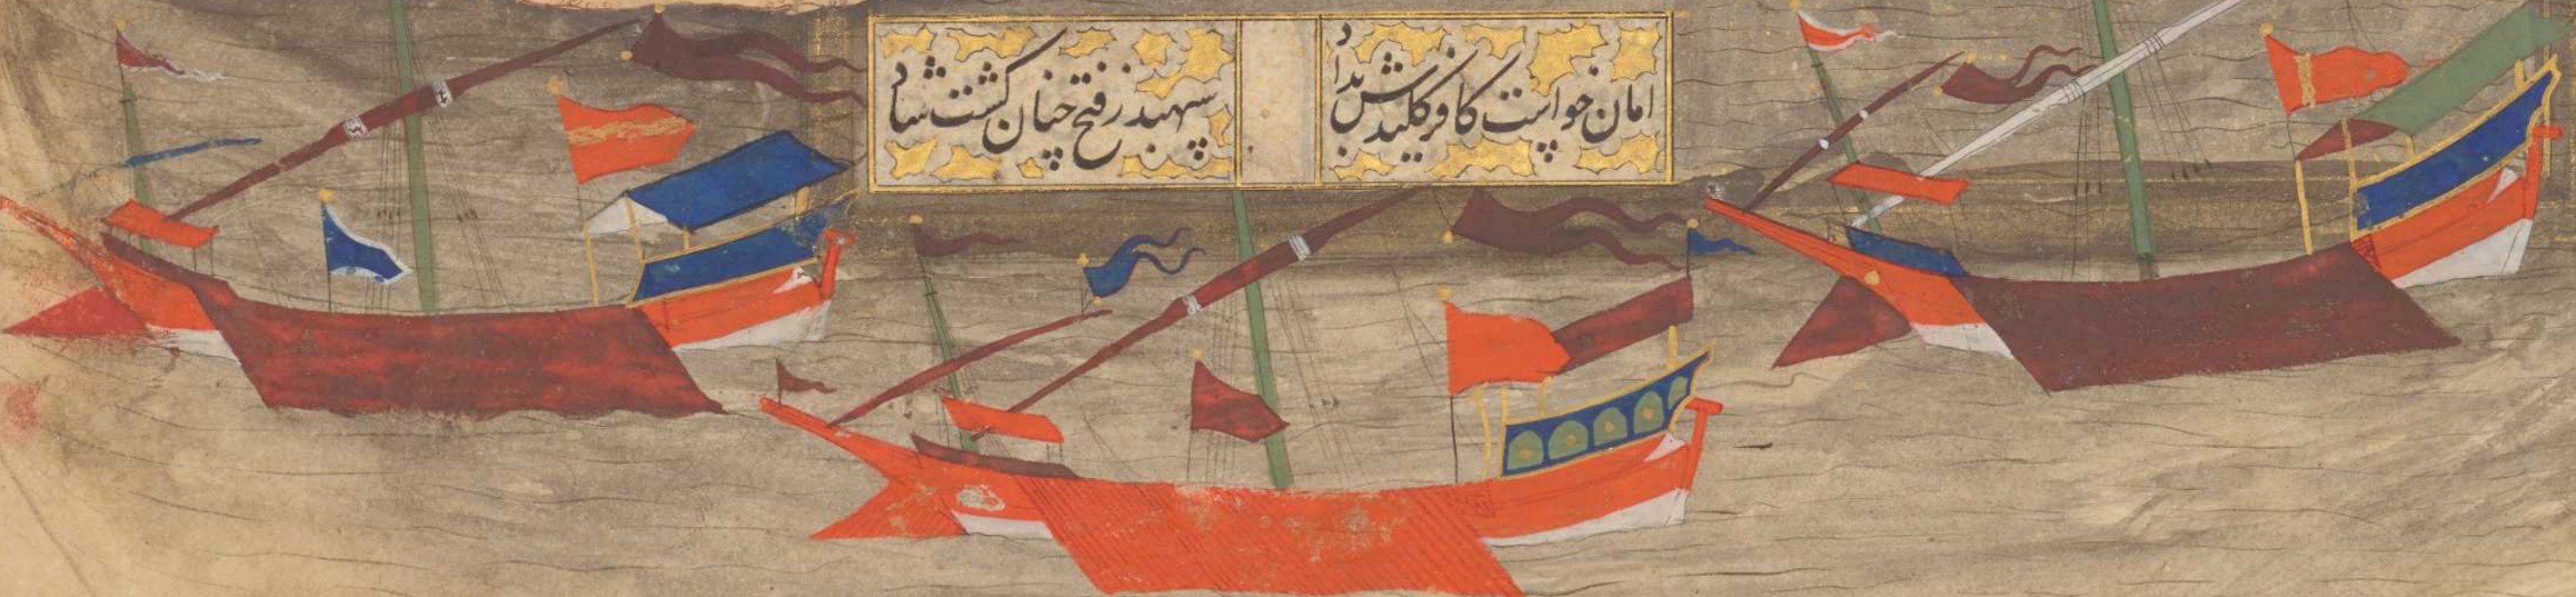 امان خواست کافر کلیدش بداد
سپهبد ز فتح چنان گشت شاد